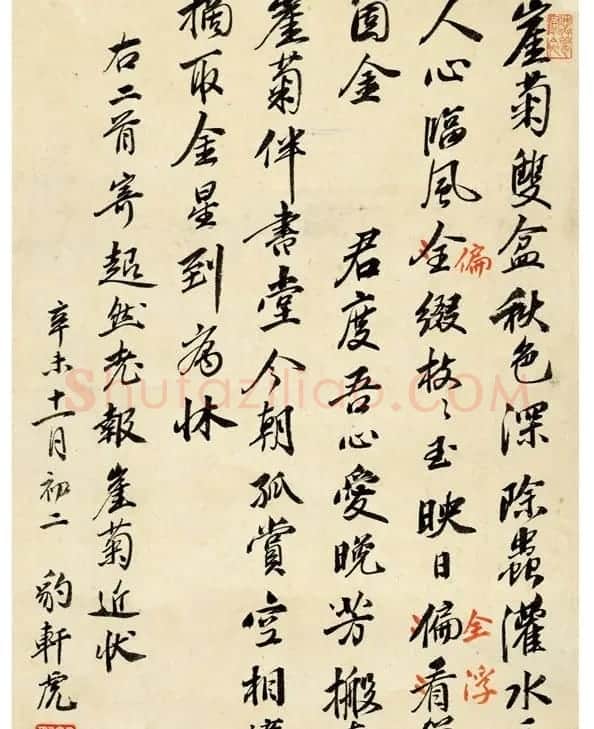 崖菊雙盆秋色深除蟲灌水
人心臨風全綴枝〻玉映日偏看
偏
全浮
圓金
君度吾心愛晚芳搬
崖菊伴書堂今朝孤賞空相
摘取金星到病牀
右二首寄超然老報崖菊近狀
辛未十一月初二 豹軒虎
Shufaziliao.COM